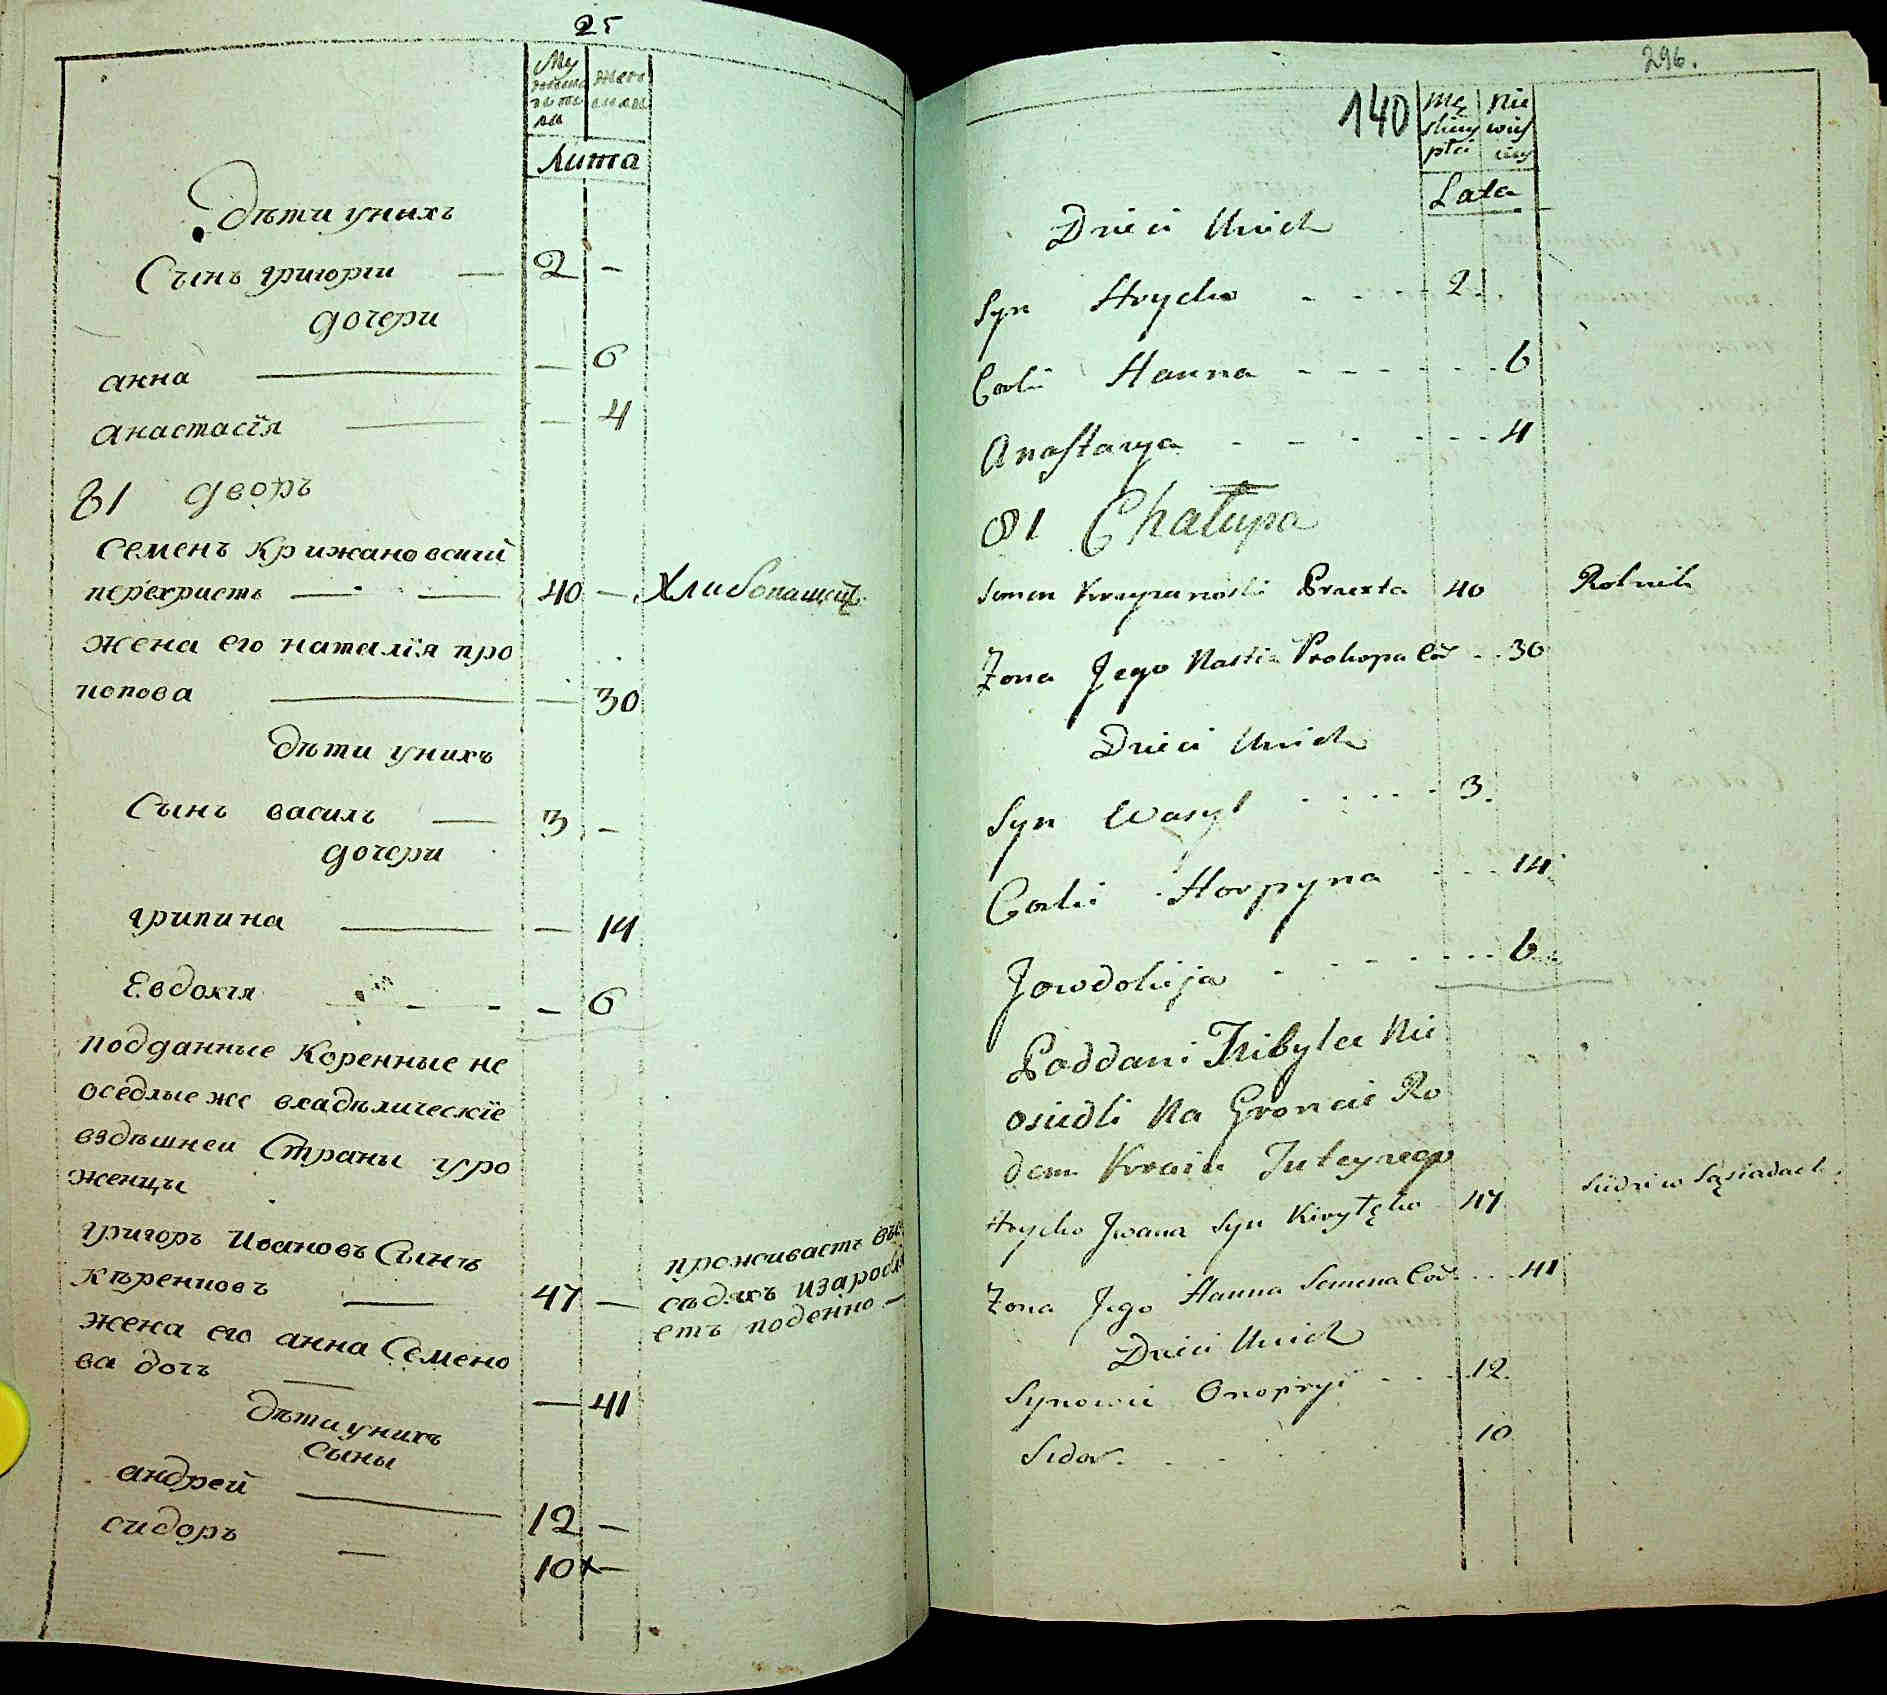 25
Му
жеска
пола
Женс
Лита
Дѣти унихъ
Сынъ григорги — 2 —
дочери
анна — — 6
анастасїя — — 4
81 дворъ
семенъ крижановскій
перехристъ — — 40 — Хлибопашецъ
жена его наталїя про
копова — — 30
дѣти унихъ
Сынъ василъ — 3 —
дочери
грипина — — 14
Евдокїя — — 6
подданные коренные не
оседлые же владѣлическїе
вздѣшнеи страны уро
женцы
григоръ Ивановъ Сынъ
47 — проживаетъ въ
сѣдяхъ изаробля
етъ поденно —
жена его анна Семено
ва дочъ — — 41
дѣти унихъ
сыны
андрей — 12 —
сидоръ — 10 —
296.
140
Mę
skiey
płci
Nie
wies
ciey
Lata
Dzieci Unich
Syn Hrycko 2
Corki Hanna 6
Anastazya 4
81 Chałupa
Semen Krzyzanoski Przexta 40 Rolnik
Zona Jego Nastia Prokopa Cór 30
Dzieci Unich
Syn Wasyl 3
Corki Horpyna 14
Jowdokija 6
Poddani Tribylei Nie
osiedli Na Groncie Ro
dem Kraiu Tuteyzego
Hrycko Jwana Syn 47 Siedzi w Sąsiadach
Zona Jego Hanna Semena Cór 41
Dzieci Unich
Synowie Onopryi 12
Sidor 10